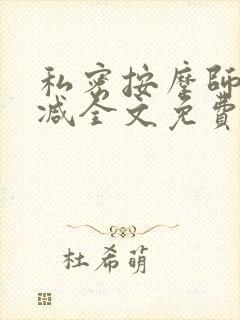 私密按摩師
减全文免費
杜希萌